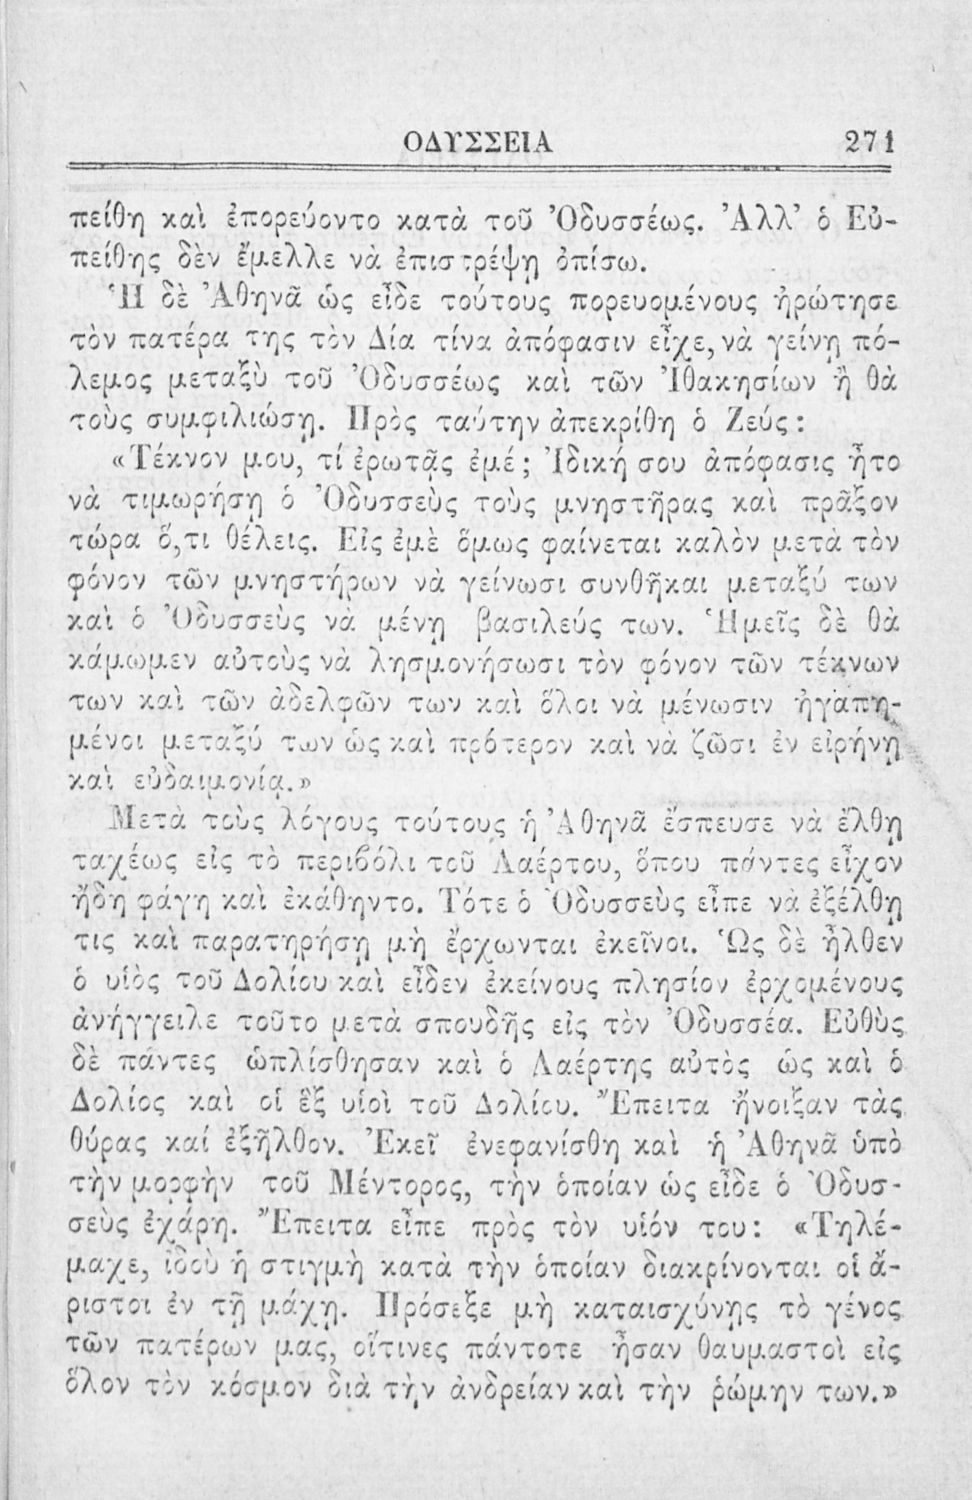 ΟΔΥΣΣΕΙΑ 271
πείθη καὶ ἐπορεύοντο κατὰ τοῦ Ὀδυσσέως. Ἀλλ’ ὁ Εὐ-
πείθης δὲν ἔμελλε νὰ ἐπιστρέψῃ ὀπίσω.
Ἡ δὲ Ἀθηνᾶ ὡς εἶδε τούτους πορευομένους ἠρώτησε
τὸν πατέρα της τὸν Δία τίνα ἀπόφασιν εἶχε, νὰ γείνῃ πό-
λεμος μεταξὺ τοῦ Ὀδυσσέως καὶ τῶν Ἰθακησίων ἢ θὰ
τοὺς συμφιλιώσῃ. Πρὸς ταύτην ἀπεκρίθη ὁ Ζεύς:
«Τέκνον μου, τί ἐρωτᾷς ἐμέ; Ἰδική σου ἀπόφασις ἦτο
νὰ τιμωρήσῃ ὁ Ὀδυσσεὺς τοὺς μνηστῆρας καὶ πρᾶξον
τώρα ὅ,τι θέλεις. Εἰς ἐμὲ ὅμως φαίνεται καλὸν μετὰ τὸν
φόνον τῶν μνηστήρων νὰ γείνωσι συνθῆκαι μεταξύ των
καὶ ὁ Ὀδυσσεὺς νὰ μένῃ βασιλεύς των. Ἡμεῖς δὲ θὰ
κάμωμεν αὐτοὺς νὰ λησμονήσωσι τὸν φόνον τῶν τέκνων
των καὶ τῶν ἀδελφῶν των καὶ ὅλοι νὰ μένωσιν ἠγαπη-
μένοι μεταξύ των ὡς καὶ πρότερον καὶ νὰ ζῶσι ἐν εἰρήνῃ
καὶ εὐδαιμονίᾳ.»
Μετὰ τοὺς λόγους τούτους ἡ Ἀθηνᾶ ἔσπευσε νὰ ἔλθῃ
ταχέως εἰς τὸ περιβόλι τοῦ Λαέρτου, ὅπου πάντες εἶχον
ἤδη φάγῃ καὶ ἐκάθηντο. Τότε ὁ Ὀδυσσεὺς εἶπε νὰ ἐξέλθῃ
τις καὶ παρατηρήσῃ μὴ ἔρχωνται ἐκεῖνοι. Ὡς δὲ ἦλθεν
ὁ υἱὸς τοῦ Δολίου καὶ εἶδεν ἐκείνους πλησίον ἐρχομένους
ἀνήγγειλε τοῦτο μετὰ σπουδῆς εἰς τὸν Ὀδυσσέα. Εὐθὺς
δὲ πάντες ὡπλίσθησαν καὶ ὁ Λαέρτης αὐτὸς ὡς καὶ ὁ
Δολίος καὶ οἱ ἓξ υἱοὶ τοῦ Δολίου. Ἔπειτα ἤνοιξαν τὰς
θύρας καί ἐξῆλθον. Ἐκεῖ ἐνεφανίσθη καὶ ἡ Ἀθηνᾶ ὑπὸ
τὴν μορφὴν τοῦ Μέντορος, τὴν ὁποίαν ὡς εἶδε ὁ Ὀδυσ-
σεὺς ἐχάρη. Ἔπειτα εἶπε πρὸς τὸν υἱόν του: «Τηλέ-
μαχε, ἰδοὺ ἡ στιγμὴ κατὰ τὴν ὁποίαν διακρίνονται οἱ ἄ-
ριστοι ἐν τῇ μάχῃ. Πρόσεξε μὴ καταισχύνῃς τὸ γένος
τῶν πατέρων μας, οἵτινες πάντοτε ἦσαν θαυμαστοὶ εἰς
ὅλον τὸν κόσμον διὰ τὴν ἀνδρείαν καὶ τὴν ῥώμην των.»